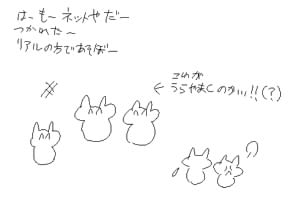 はーもーネットやだー
つかれたー
リアルの方であそぼー
これが
うらやましのか…!!(?)